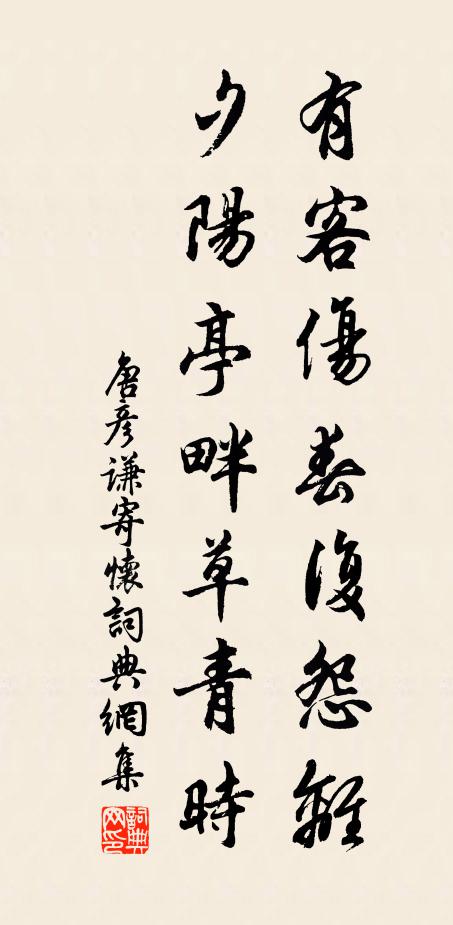 有客傷春復怨離
夕陽亭畔草青時
唐彦謙寄懷詞典網集
詞典網印